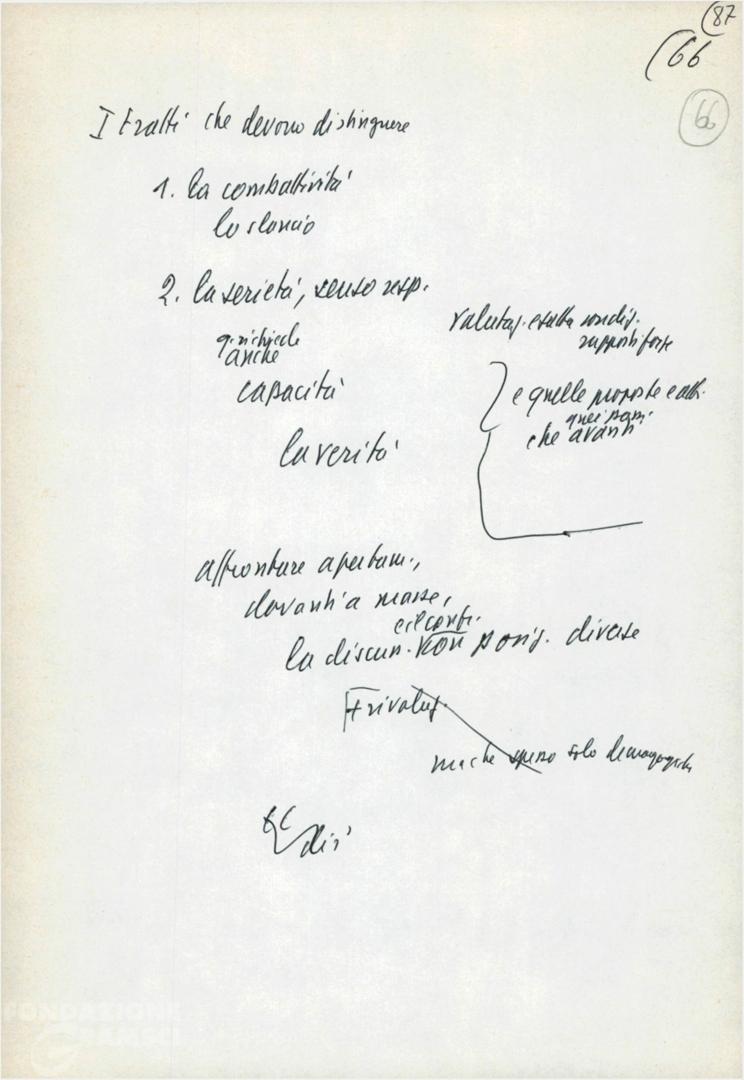 (87
(66
66
I tratti che devono distinguere
1. la combattività
lo slancio
2. la serietà, senso resp.
q. richiede
anche
capacità
la verità
valutaz. esatta condiz.
rapporti forze
e quelle proposte e
quei
che avanti
affrontare apertam.,
davanti a masse,
e il confr.
la discuss. con posiz. diverse
+ rivoluz.
ma che spesso solo demagogiche
FONDAZIONE
GRAMSCI